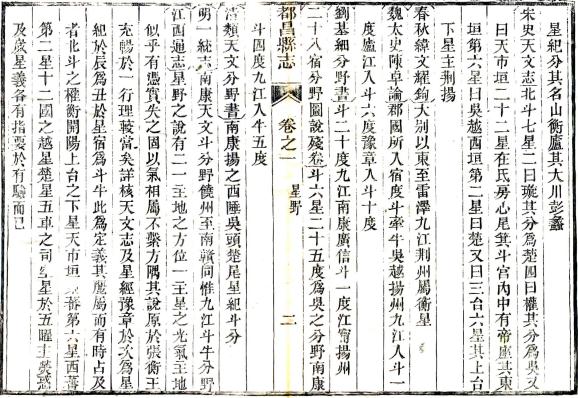 星紀分其名山衡廬其大川彭蠡
宋史天文志北斗七星二曰璇其分爲楚四曰權其分爲吳又
曰天市垣二十二星在氐房心尾箕斗宮內中有帝座其東
垣第六星曰吳越西垣第二星曰楚又曰三台六星其上台
下星主荆揚
春秋緯文耀鉤大别以東至雷澤九江荆州屬衡星
魏太史陳卓論郡國所入宿度斗牽牛吳越揚州九江入斗一
度廬江入斗六度豫章入斗十度
劉基細分野書斗二十度九江南康廣信斗一度江寧揚州
二十八宿分野圖說殘卷斗六星二十五度爲吳之分野南康
都昌縣志
卷之一
星野
二
斗四度九江入牛五度
清類天文分野書南康揚之西陲吳頭楚尾星紀斗分
明一統志南康天文斗分野饒州至南贛同惟九江斗牛分野
江西通志星野之說有二一主地之方位一主星之光氣主地
似乎有憑實矣之固以氣相屬不繫方隅其說原於張衡王
充暢於一行理較當矣詳核天文志及星經豫章於次爲星
紀於辰爲丑於星宿爲斗牛此爲定義其麗屬而有時占及
者北斗之權衡開陽上台之下星天市垣 蕃第六星西蕃
第二星十二國之越星楚星五車之司 星於五曜主熒惑
及歲星義各有指要於有驗而已